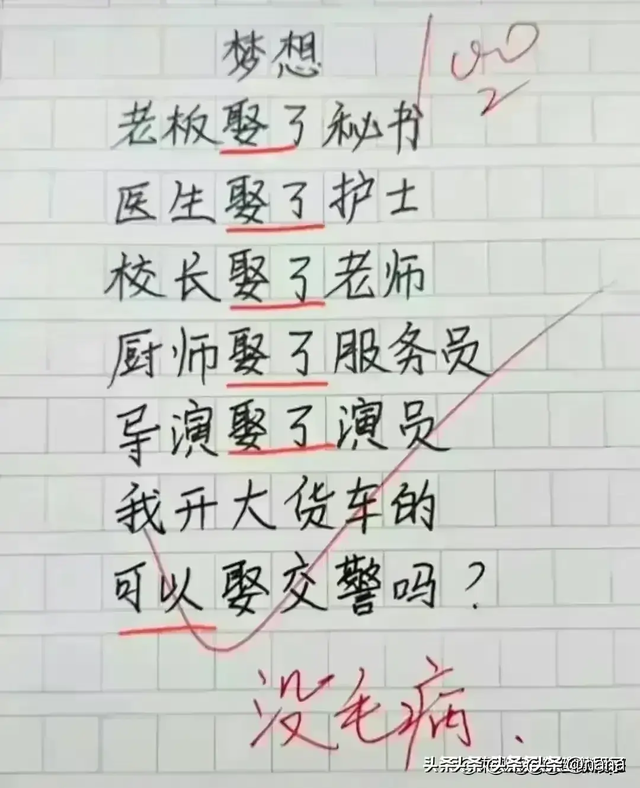 梦想
100
老板娶了秘书
医生娶了护士
校长娶了老师
厨师娶了服务员
导演娶了演员
我开大货车的
可以娶交警吗？
没毛病.